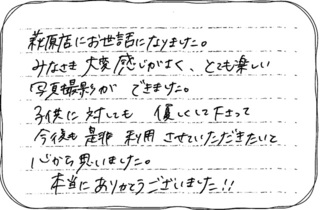 萩原店にお世話になりました。
みなさま大変感じがよく、とても楽しい
写真撮影ができました。
子供に対しても 優しくして下さって
今後も是非利用させていただきたいと
心から思いました。
本当にありがとうございました!!